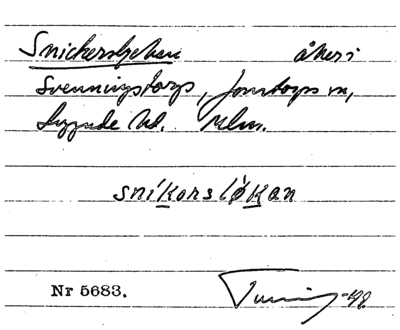 Snickerslyckan åker i
Svenningstorp, Jonstorps sn,
Luggude hd. Mlm.
snikorsløkan
Nr 5683.
-48